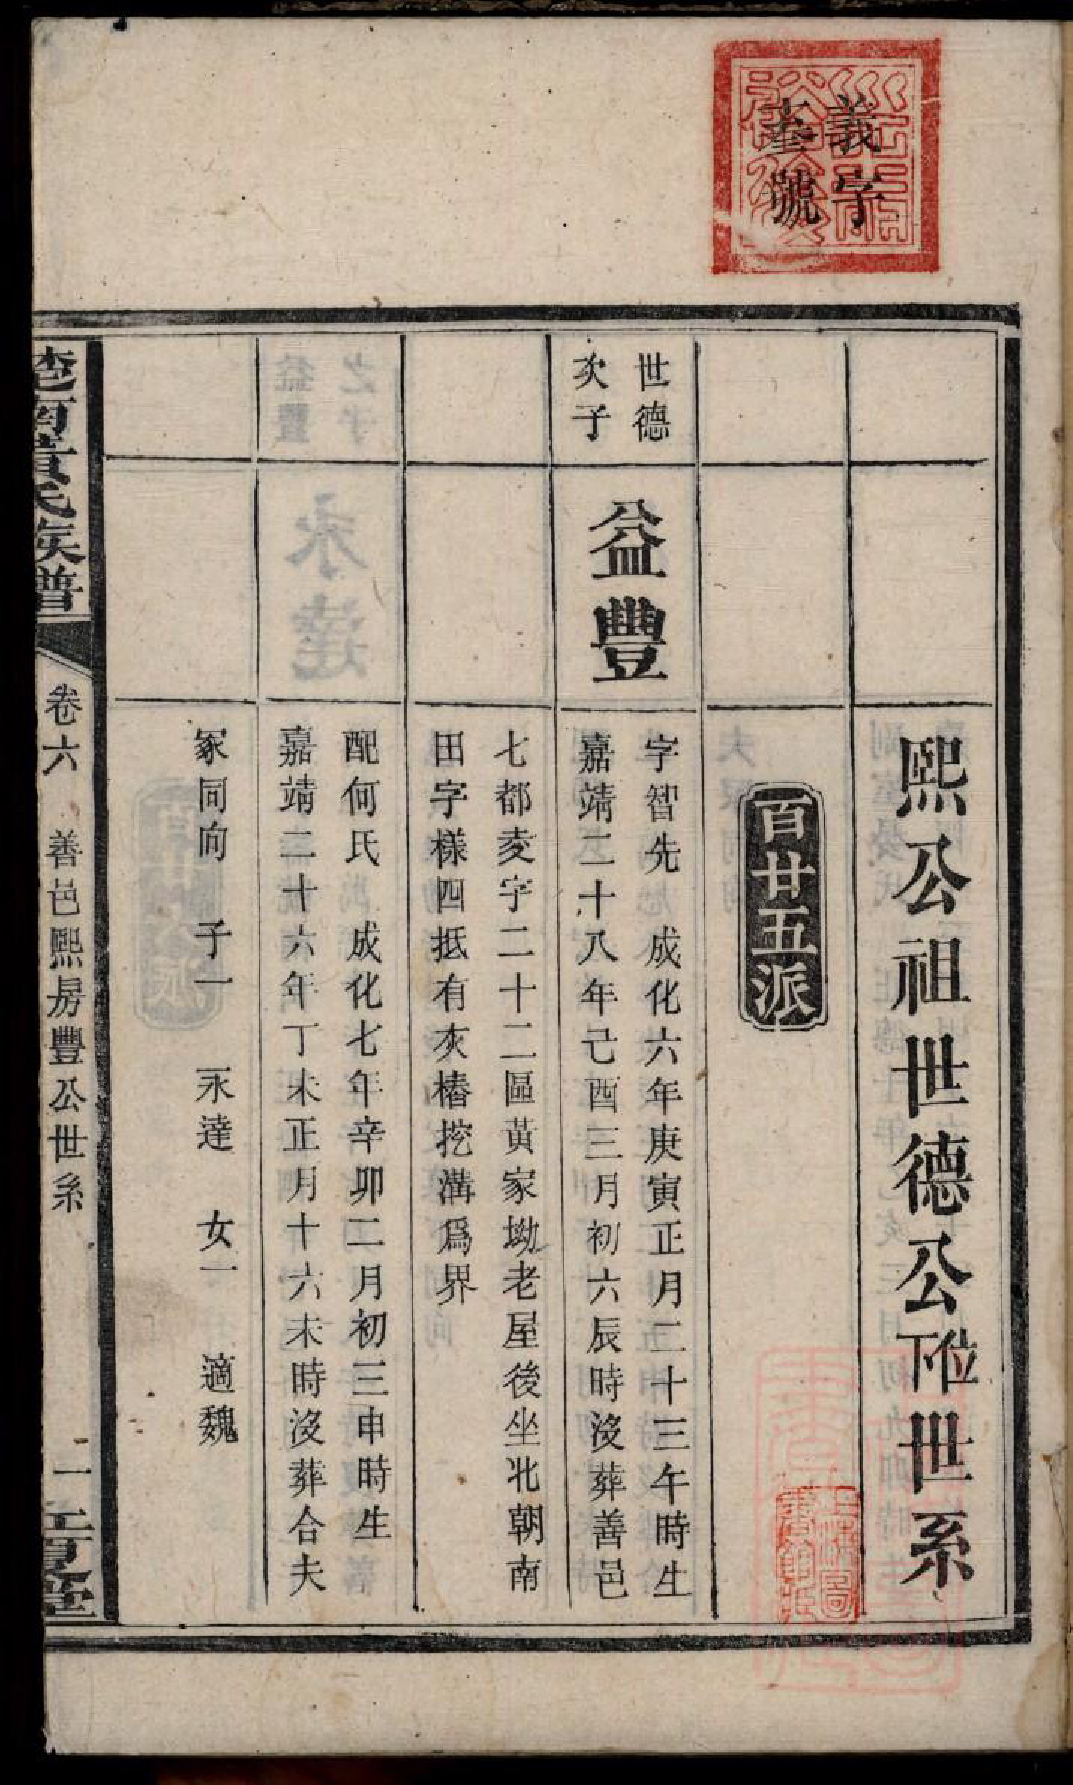 義字
號
熙公祖世德公位下世系
百廿五派
世德
次子
益豐
字智先 成化六年庚寅正月二十三午時生
嘉靖二十八年己酉三月初六辰時沒葬善邑
七都夌字二十二區黃家坳老屋後坐北朝南
田字樣四抵有灰樁挖溝爲界
配何氏 成化七年辛卯二月初三申時生
嘉靖二十六年丁未正月十六未時沒葬合夫
冢同向 子一 永達 女一 適魏
楚南黃氏族譜
卷六 善邑熙房豐公世系
一 江夏堂